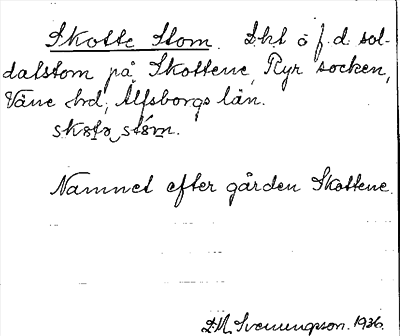 Skotte Stom. Lht å f.d. sol-
dalstom på Skottene, Ryr socken,
Väne hrd, Älfsborgs län.
Namnet efter gården Skottene.
D.M. Svenungsson. 1936.